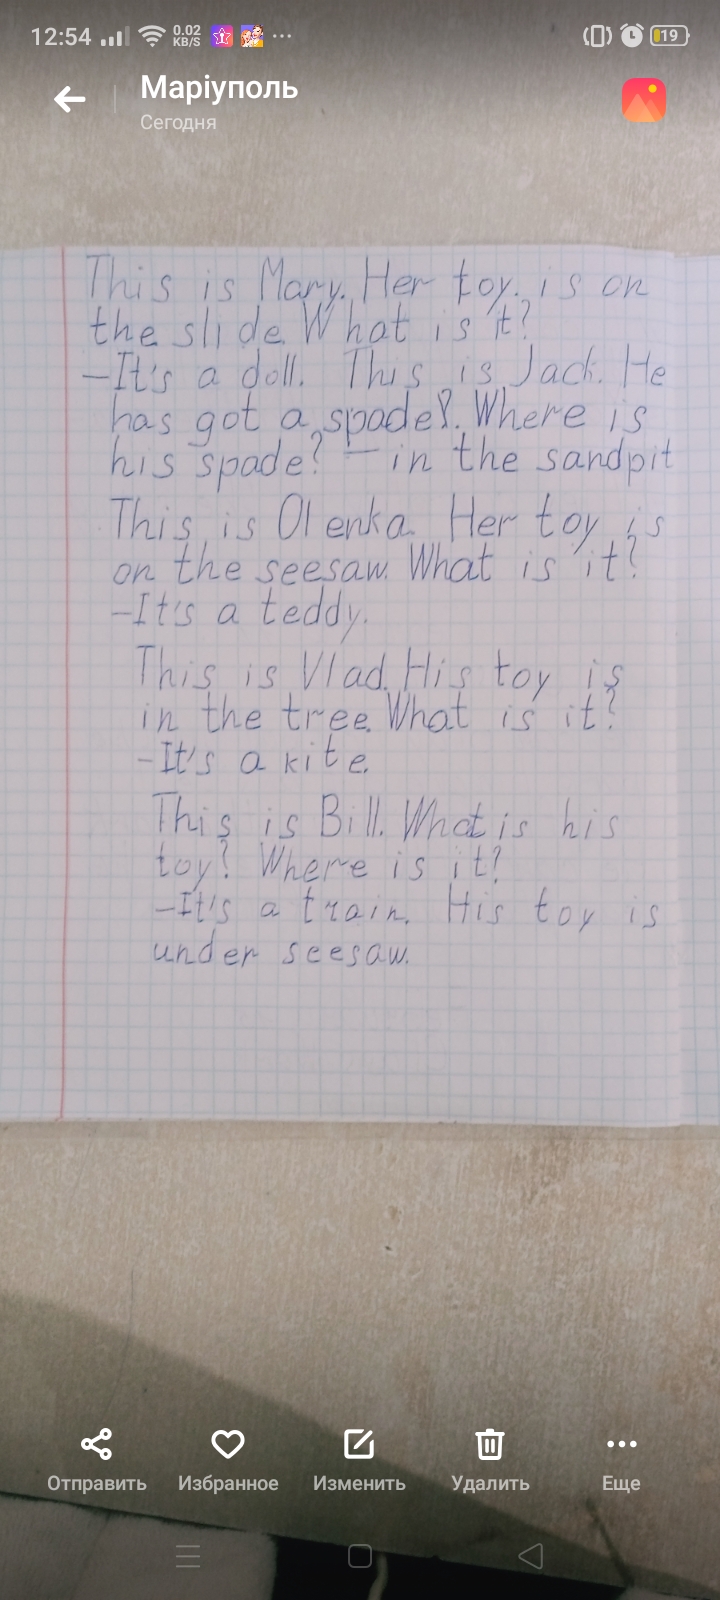 12:54 0.02 KB/S 19
Маріуполь
Сегодня
This is Mary. Her toy is on
the slide. What is it?
—It's a doll. This is Jack. He
has got a spade?. Where is
his spade? — in the sandpit
This is Olenka. Her toy is
on the seesaw. What is it?
—It's a teddy.
This is Vlad. His toy is
in the tree. What is it?
-It's a kite.
This is Bill. What is his
toy? Where is it?
—It's a train. His toy is
under seesaw.
Отправить Избранное Изменить Удалить Еще